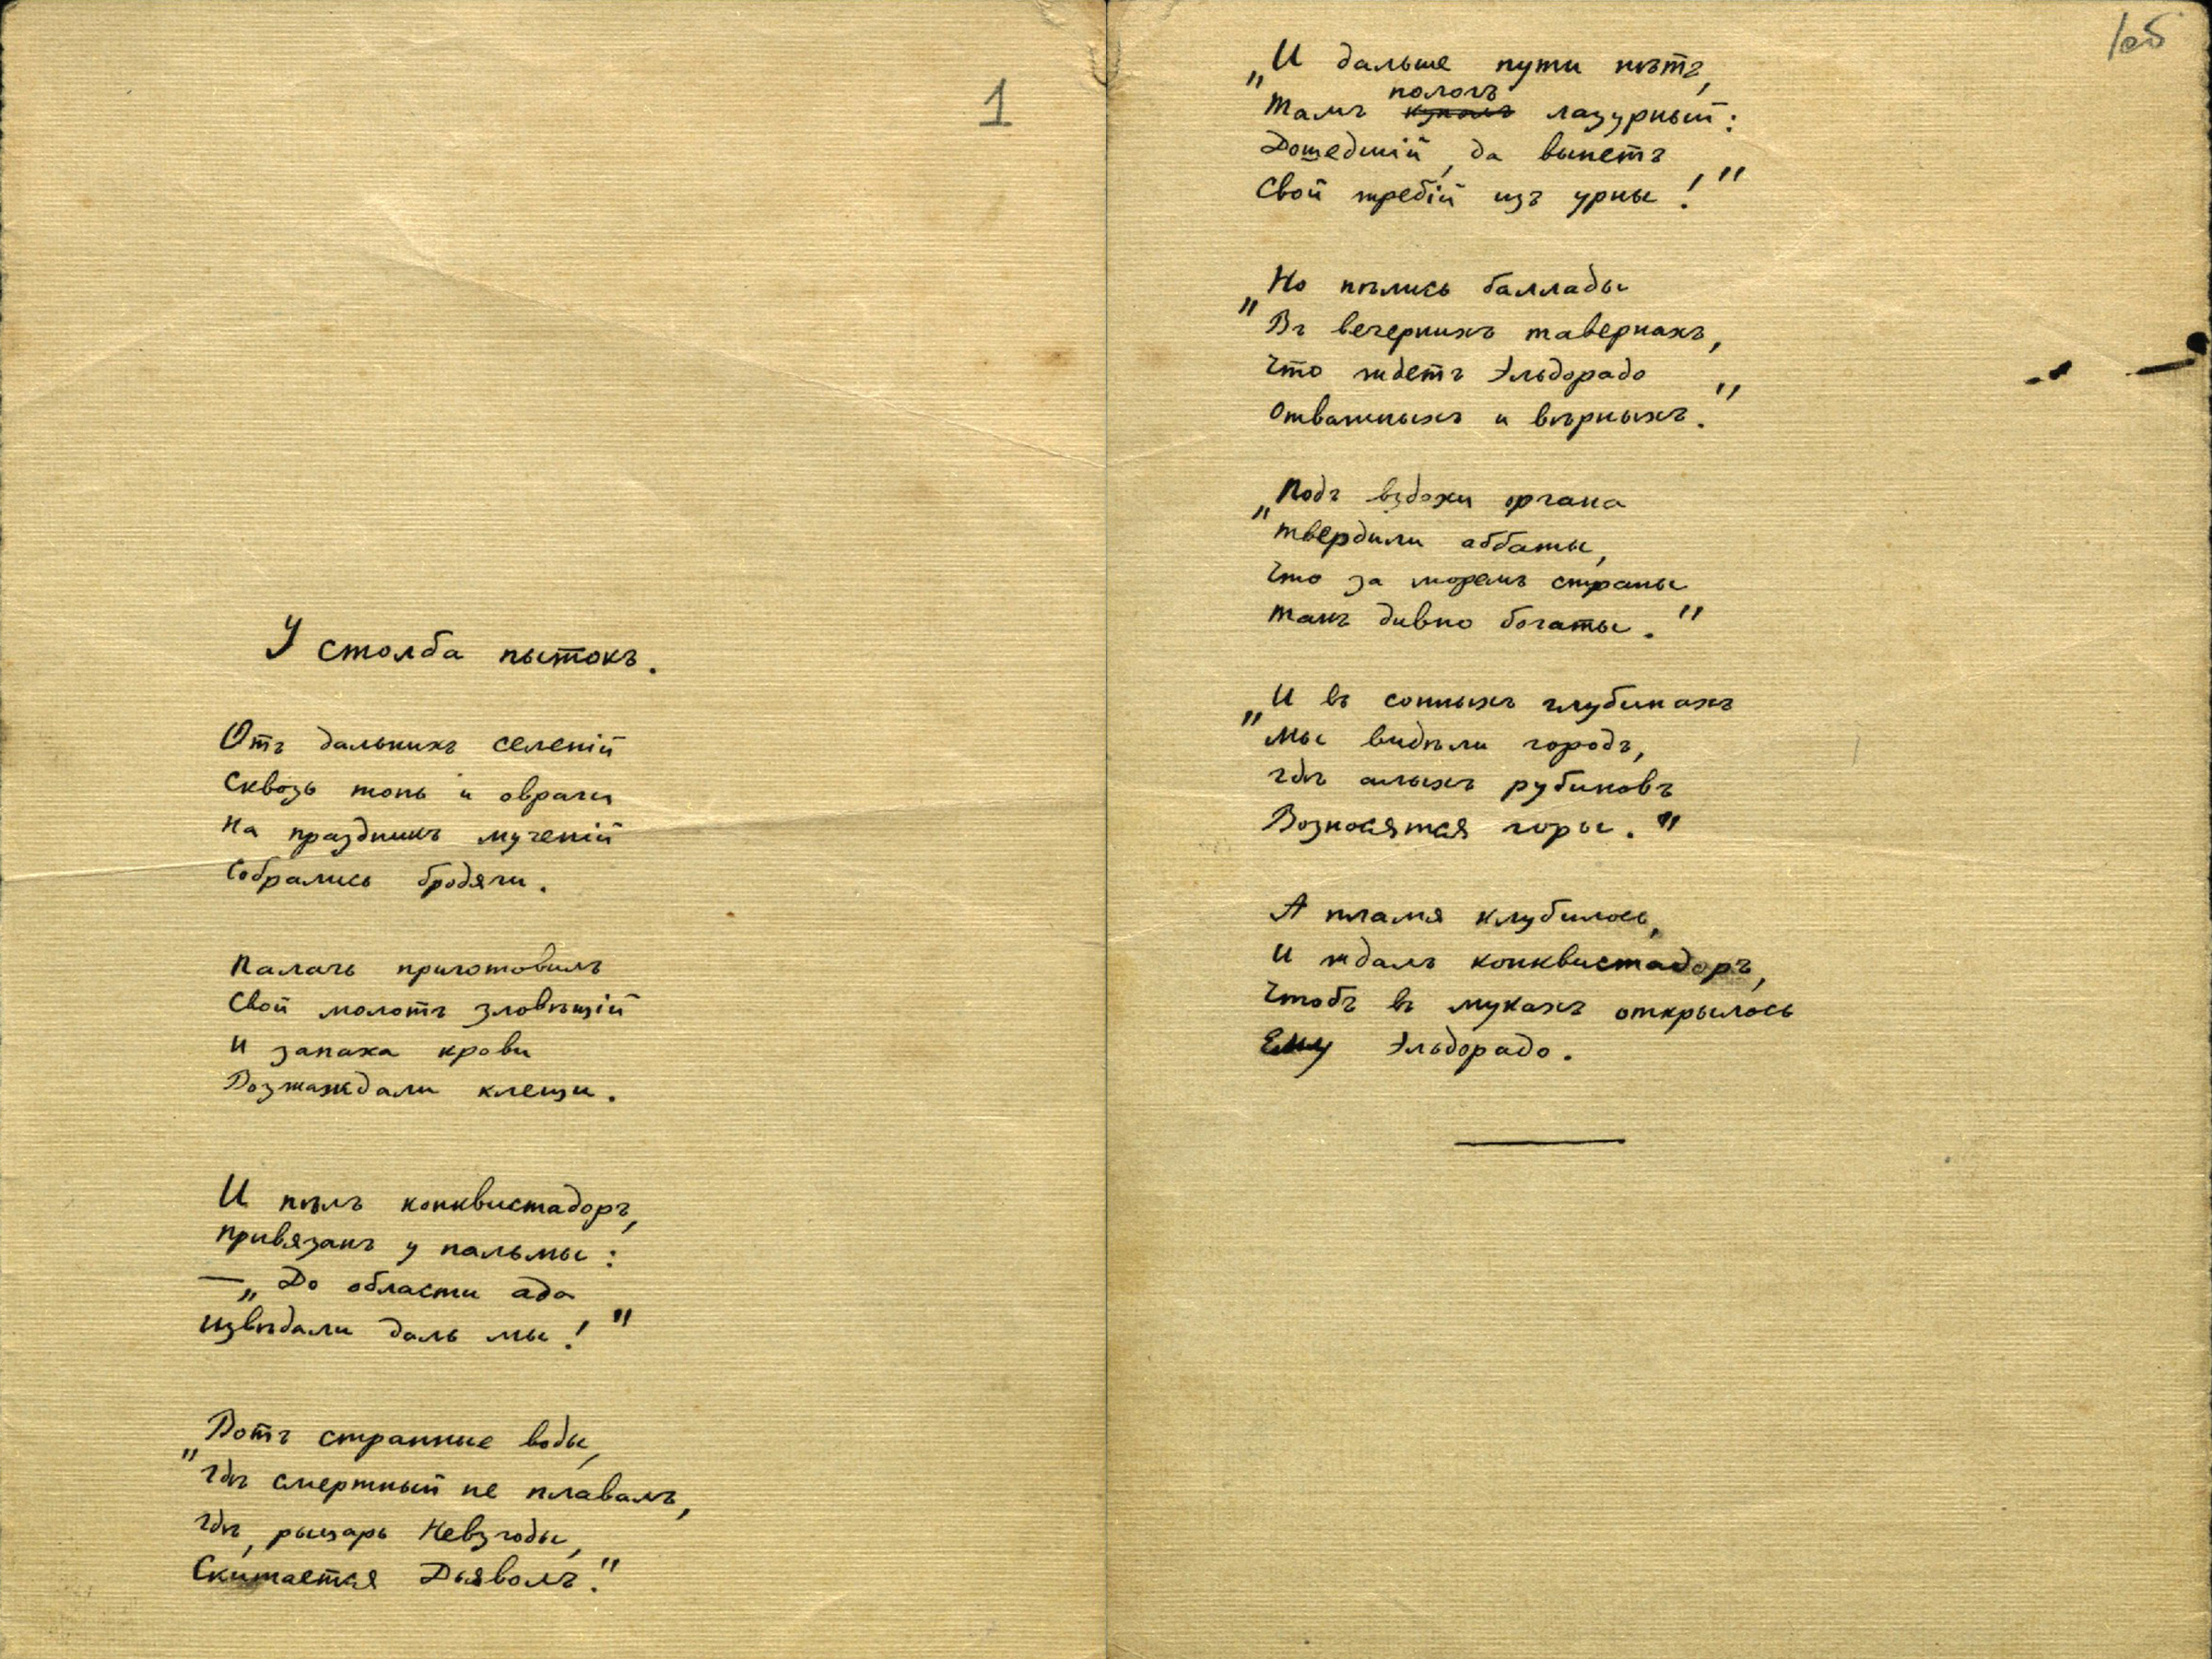 1
У столба пытокъ.
Отъ дальнихъ селенiй
Сквозь топь и овраги
На праздникъ мученiй
Собрались бродяги.
Палачъ приготовилъ
Свой молотъ зловѣщiй
И запаха крови
Возжаждали клещи.
И пѣлъ конквистадоръ,
Привязанъ у пальмы:
— „До области ада
Извѣдали даль мы!"
„Вотъ странные воды,
Гдѣ смертный не плавалъ,
Гдѣ, рыцарь Невзгоды,
Скитается Дьяволъ."
1об
„И дальше пути нѣтъ,
пологъ
Тамъ куполъ лазурный:
Дошедшiй, да вынетъ
Свой жребiй изъ урны!"
„Но пѣлись баллады
Въ вечернихъ тавернахъ,
Что ждетъ Эльдорадо
Отважныхъ и вѣрныхъ."
„Подъ вздохи органа
Твердили аббаты,
Что за моремъ страны
Такъ дивно богаты."
„И въ сонныхъ глубинахъ
Мы видѣли городъ,
Гдѣ алыхъ рубиновъ
Возносятся горы."
А пламя клубилось,
И ждалъ конквистадоръ,
Чтобъ въ мукахъ открылось
Ему Эльдорадо.